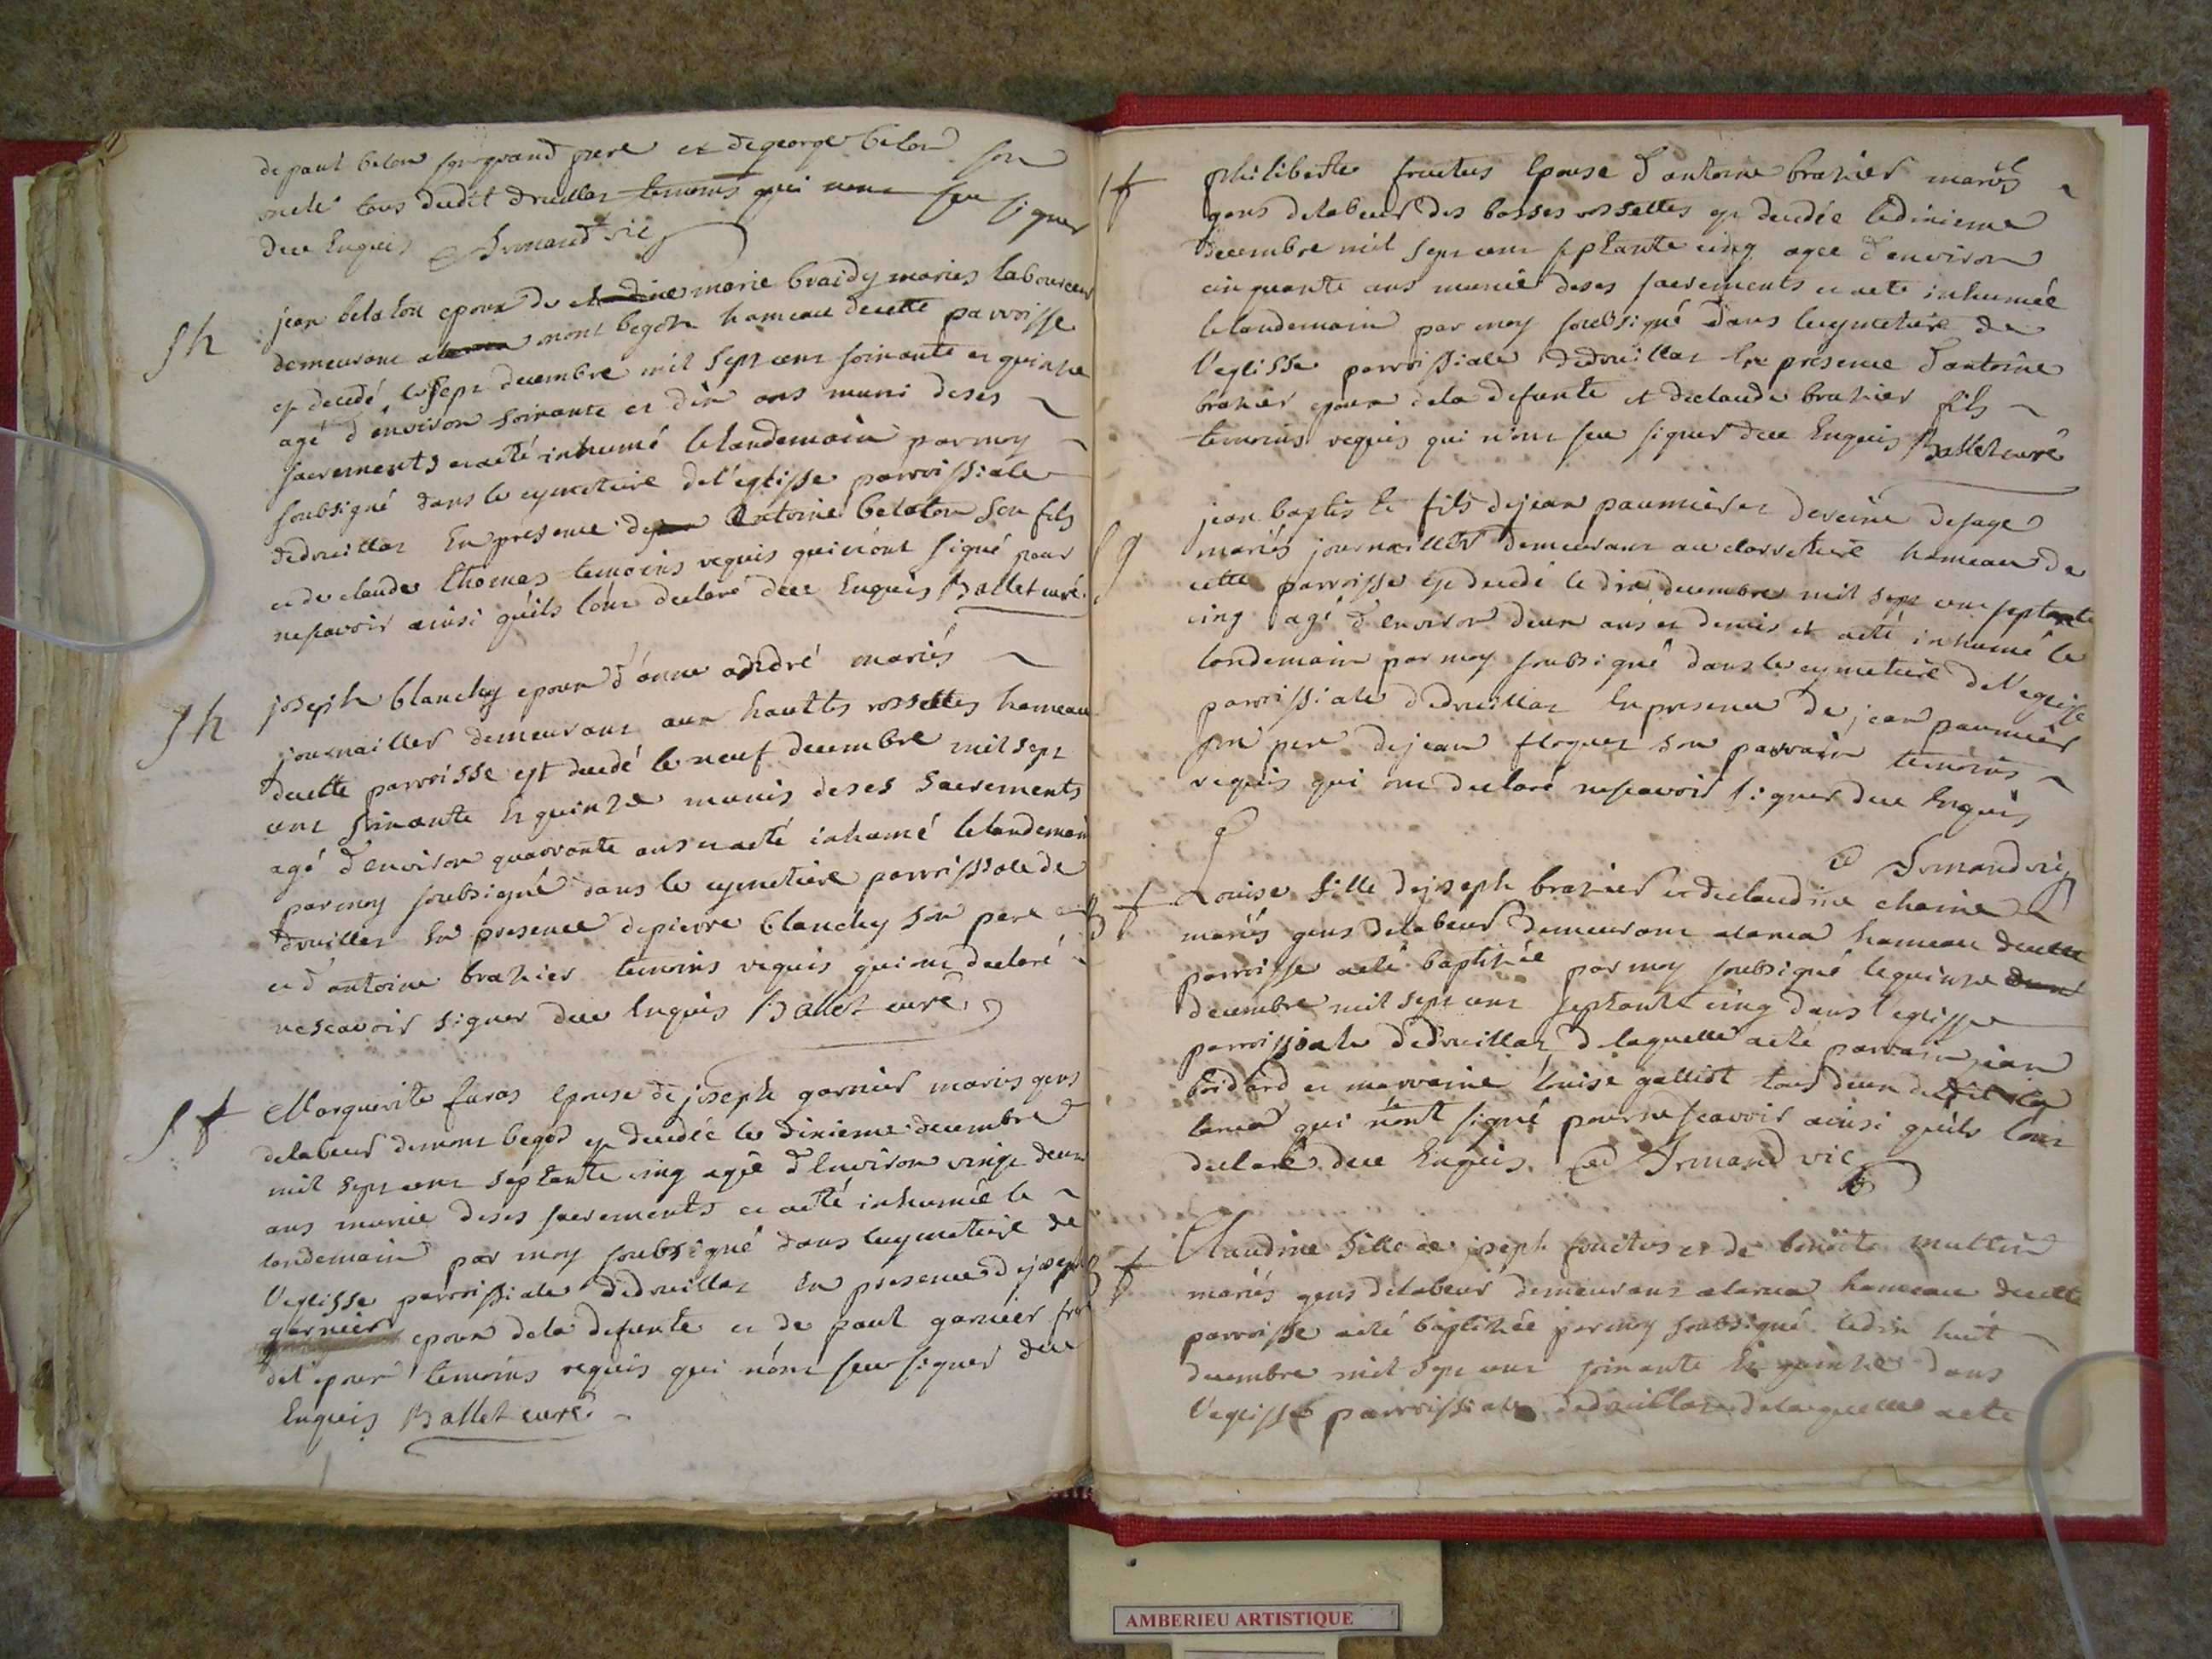 de paul belou son grand pere et de george belou son
oncle tous dudit druillat temoins qui nont seu signer
dece enquis Armand vic
sh
jean belaton epoux de claudine marie braidy mariés laboureur
demeurant a mont begos hameau de cette parroisse
est decedé le sept decembre mil sept cent soixante et quinze
agé d'environ soixante et dix ans muni de ses
sacrements et a eté inhumé le landemain par moy
soubsigné dans le cymetiere de l'eglisse parroissiale
de druillat en presence de jean antoine belaton son fils
et de claude thomas temoins requis qui n'ont signé pour
ne scavoir ainsi quils lont declaré dece enquis Ballet curé
sh
joseph blanchy epoux d'anne andré mariés
journailler demeurant aux hauttes rossettes hameau
de cette parroisse est decedé le neuf decembre mil sept
cent soixante et quinze munis de ses sacrements
agé d'environ quarante ans et a eté inhumé le landemain
par moy soubsigné dans le cymetiere parroissiale de
druillat en presence de pierre blanchy son pere
et d'antoine brazier temoins requis qui ont declaré
ne scavoir signer dece enquis Ballet curé
sf
Marguerite furas epouse de joseph garnier mariés gens
de labeur de mont begos est decedée le dixieme decembre
mil sept cent septante cinq agée d'environ vingt deux
ans munie de ses sacrements et a eté inhumée le
landemain par moy soubsigné dans le cymetiere de
l'eglisse parroissiale de druillat en presence de joseph
garnier epoux de la defunte et de paul garnier frere
del epoux temoins requis qui n'ont seu signer dece
enquis Ballet curé
sf
philiberte fructus epouse d'antoine brazier mariés
gens de labeur des basses rossettes est decedée le dixieme
decembre mil sept cent septante cinq agée d'environ
cinquante ans munie de ses sacrements et a eté inhumée
le landemain par moy soubsigné dans le cymetiere de
l'eglisse parroissiale de druillat en presence d'antoine
brazier epoux de la defunte et de claude brazier fils
temoins requis qui n'ont seu signer dece enquis Ballet curé
sg
jean baptiste fils de jean paumier et de reine desage
mariés journaillers demeurant au clorretiere hameau de
cette parroisse est decedé le dix decembre mil sept cent septante
cinq agé d'environ deux ans et demis et a eté inhumé le
landemain par moy soubsigné dans le cymetiere de l'eglisse
parroissiale de druillat en presence de jean paumier
son pere de jean floquet son parrain temoins
requis qui ont declaré ne scavoir signer dece enquis
Armand vic
Bf
Louise fille de joseph brazier et de claudine chaine
mariés gens de labeur demeurant a larua hameau de cette
parroisse a eté baptisée par moy soubsigné le quinze
decembre mil sept cent septante cinq dans l'eglisse
parroissiale de druillat de laquelle a eté parrain jean
boidard et marraine louise galliot tous deux dudit
larua qui n'ont signé pour ne scavoir ainsi quils lont
declaré dece enquis Armand vic
Bf
Claudine fille de joseph fructus et de benoite mullin
mariés gens de labeur demeurant a larua hameau de cette
parroisse a eté baptisée par moy soubsigné le dix huit
decembre mil sept cent soixante et quinze dans
l'eglisse parroissiale de druillat de laquelle a eté
AMBERIEU ARTISTIQUE